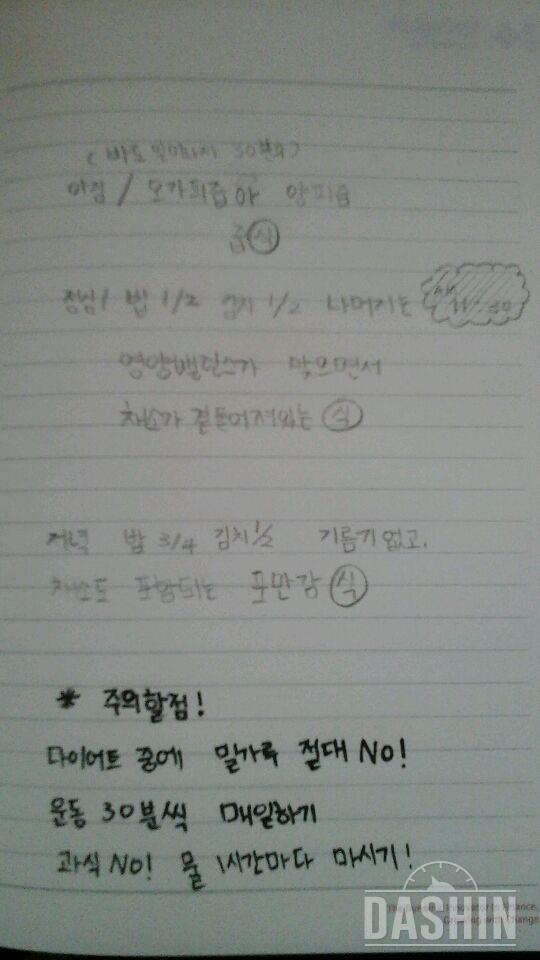 아침 / 오가피즙야 양파즙
즙 식
점심 / 밥 1/2 김치 1/2 나머지는 AM 11:30
영양밸런스가 맞으면서
채소가 곁들어져있는 식
저녁 밥 3/4 김치 1/2 기름기없고,
채소도 포함되는 포만감 식
* 주의할점!
다이어트 중에 밀가루 절대 NO!
운동 30분씩 매일하기
과식 NO! 물 1시간마다 마시기!
DASHIN